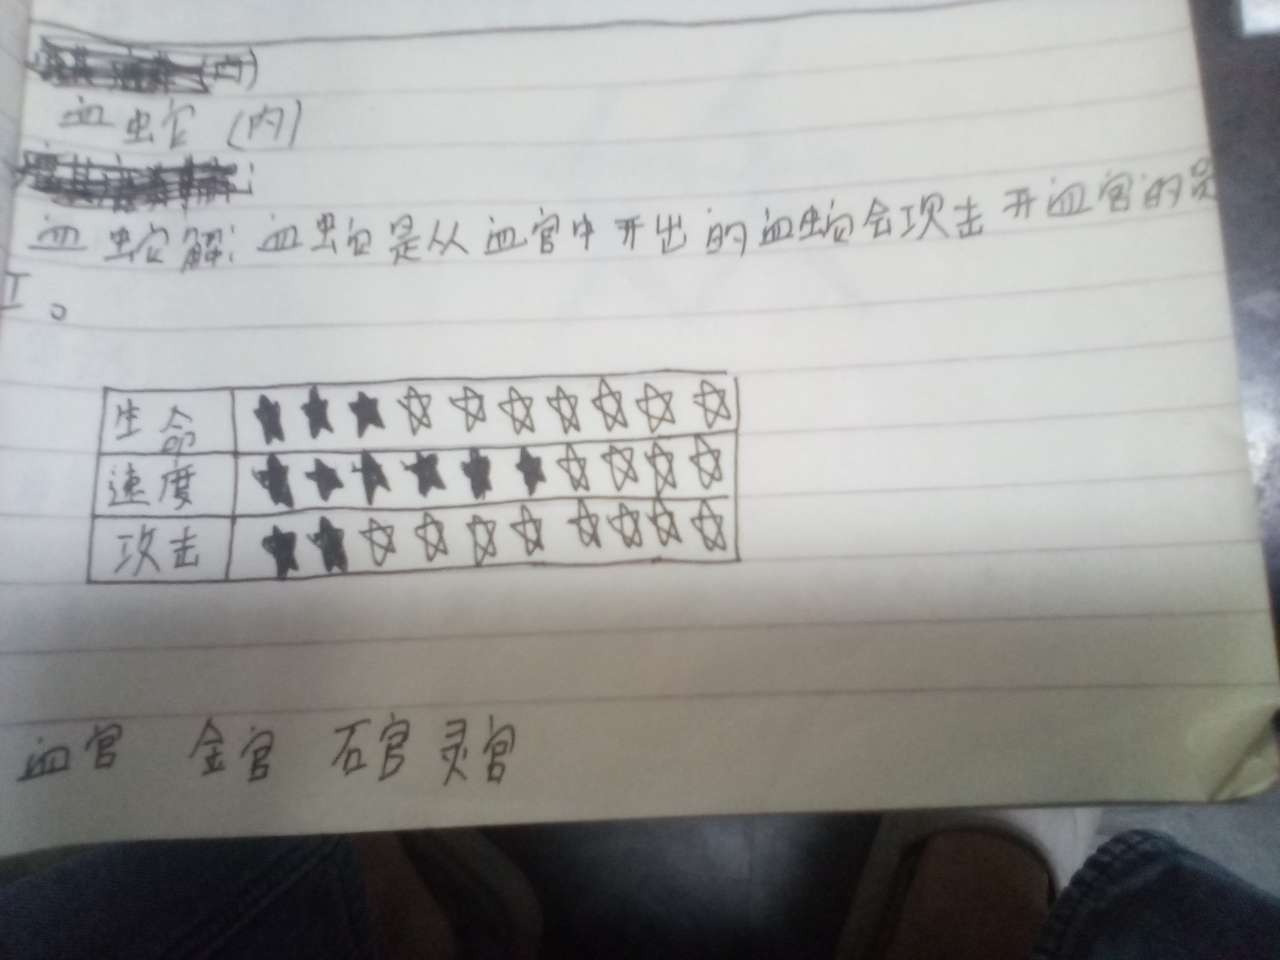 (内)
血蛇 (内)
血蛇解: 血蛇是从血宫中开出的血蛇会攻击开血宫的员
工。
生命 ★★★☆☆☆☆☆☆☆
速度 ★★★★★★☆☆☆☆
攻击 ★★☆☆☆☆☆☆☆☆
血宫 金宫 石宫 灵宫